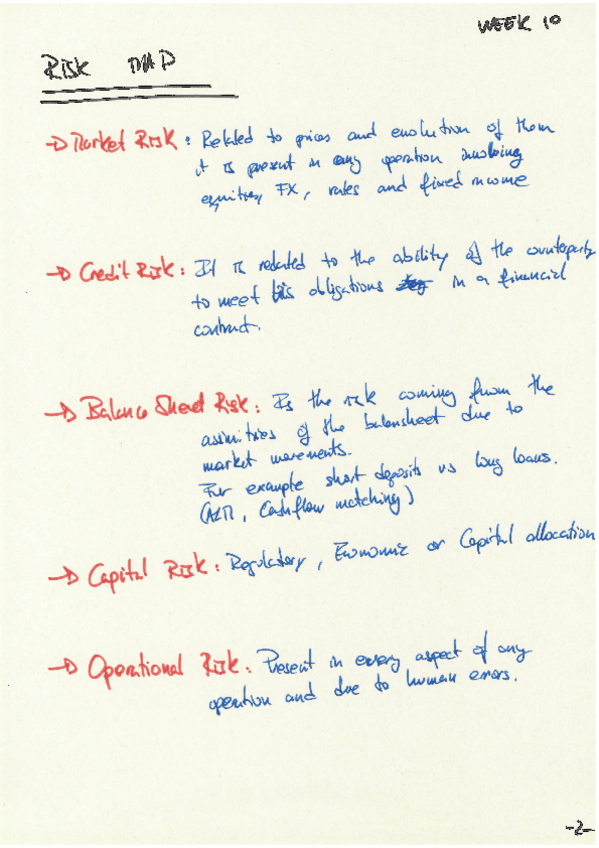 WEEK 10
RISK MAP
→ Market Risk: Related to prices and evolution of them
it is present in any operation involving
equities, FX, rates and fixed income
→ Credit Risk: It is related to the ability of the counterparty
to meet his obligations in a financial
contract.
→ Balance Sheet Risk: Is the risk coming from the
asimitries of the balansheet due to
market movements.
For example short deposits vs long loans.
(ALM, Cashflow matching)
→ Capital Risk: Regulatory, Economic or Capital allocation
→ Operational Risk: Present in every aspect of any
operation and due to human errors.
-2-